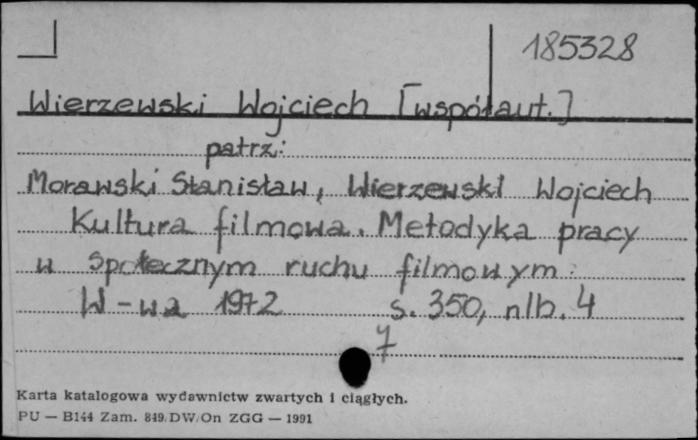 185328
Wierzewski Wojciech [współaut.]
patrz:
Morawski Stanisław, Wierzewski Wojciech
Kultura filmowa. Metodyka pracy
w społecznym ruchu filmowym.
W-wa 1972 s. 350, nlb. 4
7
Karta katalogowa wydawnictw zwartych i ciągłych.
PU — B144 Zam. 849/DW/On ZGG — 1991